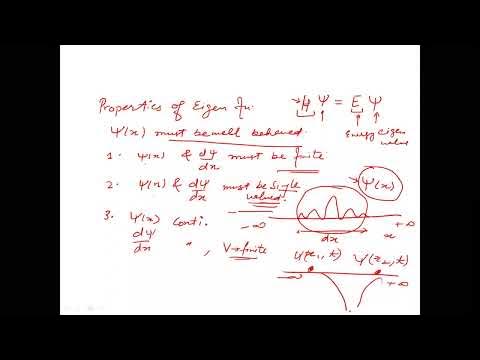 Properties of Eigen fn:
H Ψ = E Ψ
Energy Eigen value
Ψ(x) must be well behaved.
1. Ψ(x) & dΨ/dx must be finite
2. Ψ(x) & dΨ/dx must be single valued.
Ψ(x)
3. Ψ(x) conti.
dΨ/dx " , V→finite
-∞ dx x +∞
Ψ(x₁,t) Ψ(x₂,t)
-∞ +∞